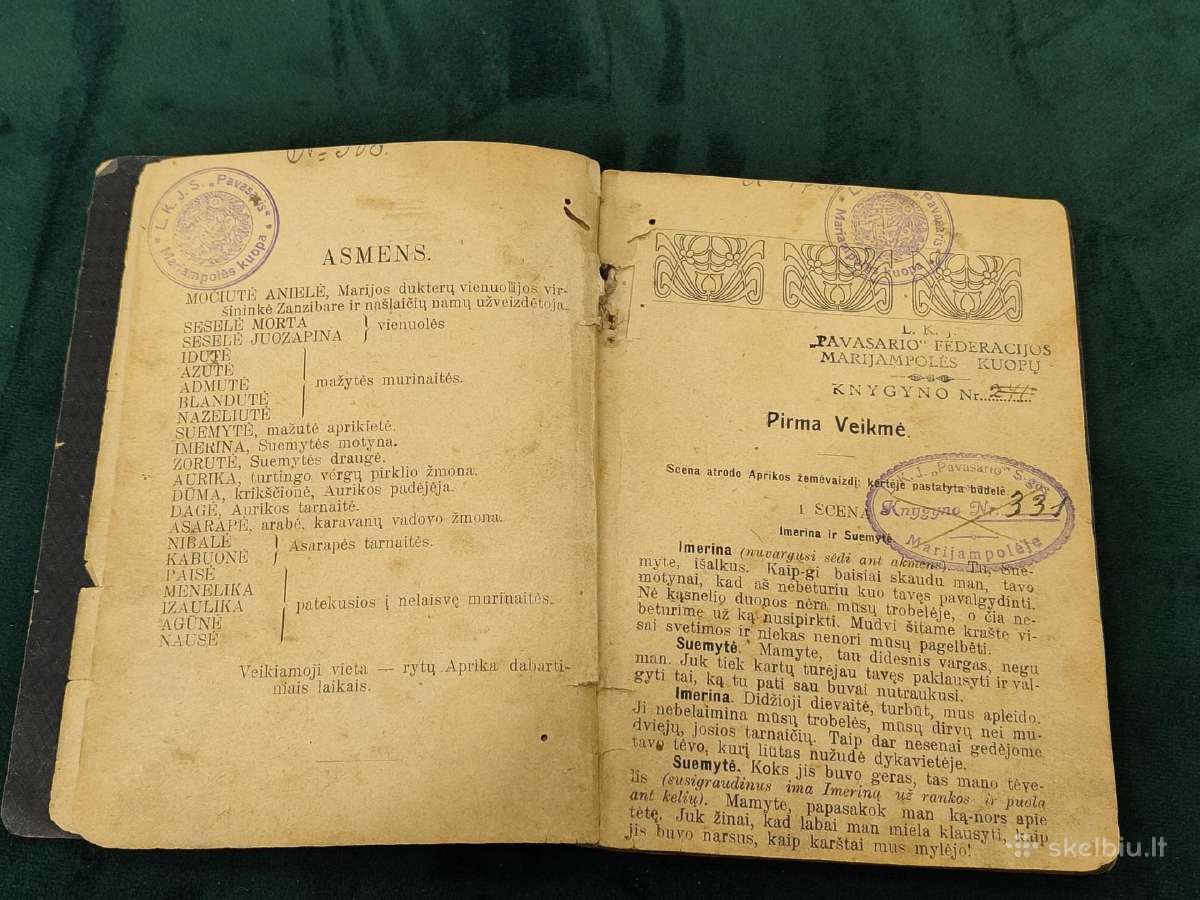 L. K. J. S. „Pavasaris“
Mariampolės kuopa
ASMENS.
MOČIUTĖ ANIELĖ, Marijos dukterų vienuolijos vir-
šininkė Zanzibare ir našlaičių namų užveizdėtoja.
SESELĖ MORTA
SESELĖ JUOZAPINA
vienuolės
IDUTĖ
AZUTĖ
ADMUTĖ
BLANDUTĖ
NAZELIUTĖ
mažytės murinaitės.
SUEMYTĖ, mažutė aprikietė.
IMERINA, Suemytės motyna.
ZORUTĖ, Suemytės draugė.
AURIKA, turtingo vėrgų pirklio žmona.
DŪMA, krikščionė, Aurikos padėjėja.
DAGĖ, Aurikos tarnaitė.
ASARAPĖ, arabė, karavanų vadovo žmona.
NIBALĖ
KABUONĖ
Asarapės tarnaitės.
PAISĖ
MENELIKA
IZAULIKA
AGŪNĖ
NAUSĖ
patekusios į nelaisvę murinaitės.
Veikiamoji vieta — rytų Aprika dabarti-
niais laikais.
„Pavasaris
Mariampolės kuopa
L. K. J.
„PAVASARIO“ FEDERACIJOS
MARIJAMPOLĖS KUOPŲ
KNYGYNO Nr.
Pirma Veikmė.
Scena atrodo Aprikos žemėvaizdį; kertėje pastatyta būdelė
K. J. „Pavasario“ S-gos
Knygyno Nr. 331
Marijampolėje
1 SCENA
Imerina ir Suemytė.
Imerina (nuvargusi sėdi ant akmens). Tu, Sue-
myte, išalkus. Kaip-gi baisiai skaudu man, tavo
motynai, kad aš nebeturiu kuo tavęs pavalgydinti.
Nė kąsnelio duonos nėra mūsų trobelėje, o čia ne-
beturime už ką nusipirkti. Mudvi šitame krašte vi-
sai svetimos ir niekas nenori mūsų pagelbėti.
Suemytė. Mamyte, tau didesnis vargas, negu
man. Juk tiek kartų turėjau tavęs paklausyti ir val-
gyti tai, ką tu pati sau buvai nutraukusi.
Imerina. Didžioji dievaitė, turbūt, mus apleido.
Ji nebelaimina mūsų trobelės, mūsų dirvų nei mu-
dviejų, josios tarnaičių. Taip dar nesenai gedėjome
tavo tėvo, kurį liūtas nužudė dykavietėje.
Suemytė. Koks jis buvo geras, tas mano tėve-
lis (susigraudinus ima Imeriną už rankos ir puola
ant kelių). Mamyte, papasakok man ką-nors apie
tėtę. Juk žinai, kad labai man miela klausyti, kaip
jis buvo narsus, kaip karštai mus mylėjo!
skelbiu.lt